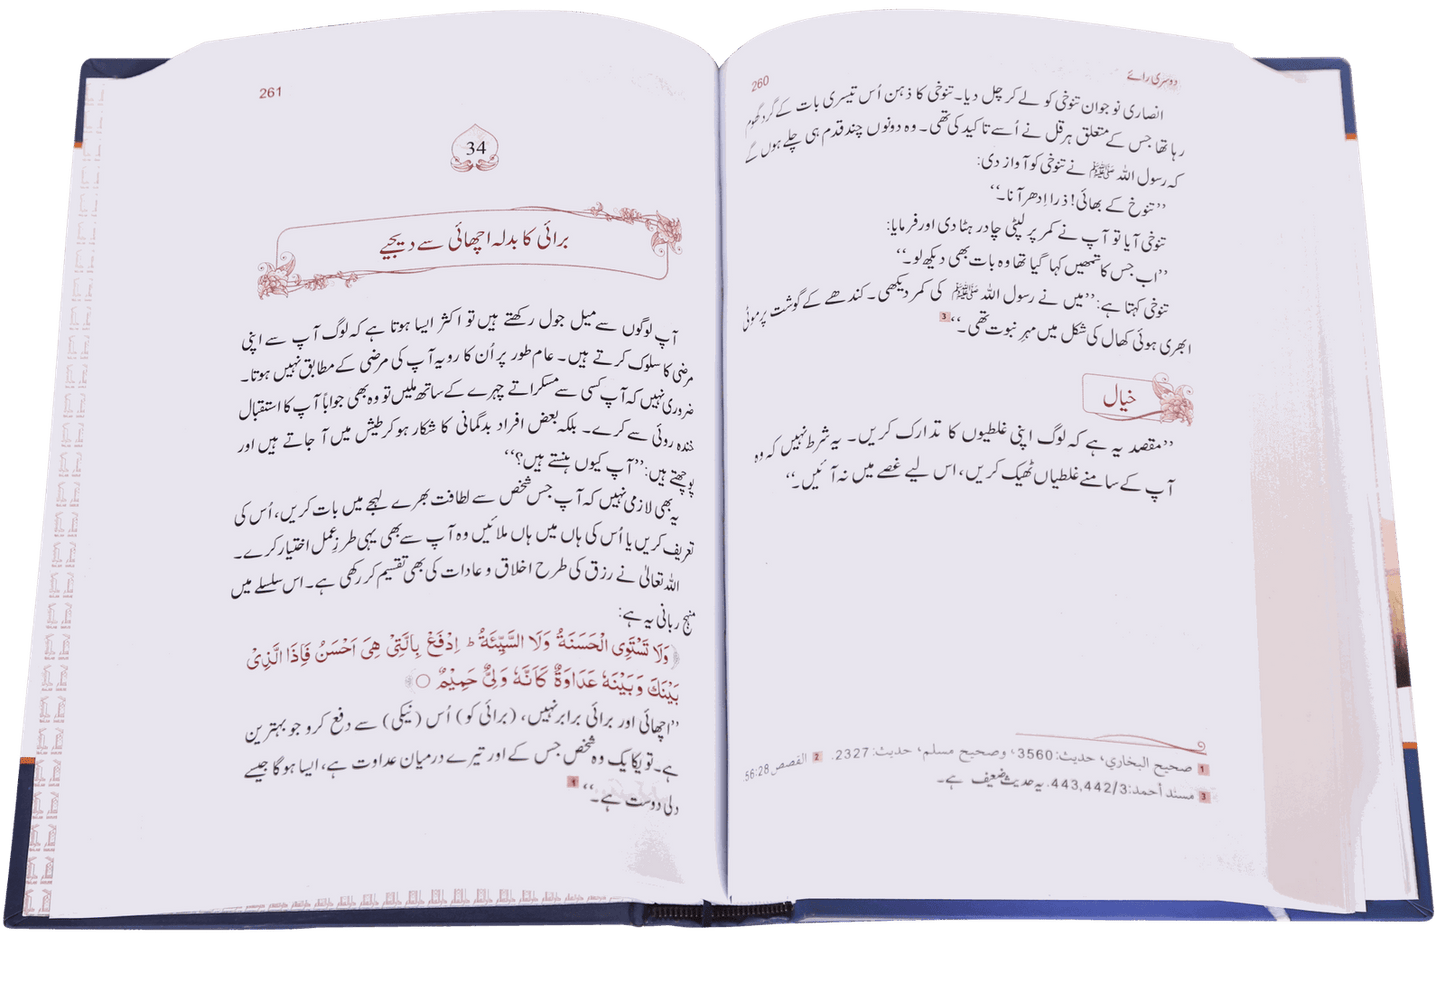 دوسری رائے
260
انصاری نوجوان تنوخی کو لے کر چل دیا۔ تنوخی کا ذہن اُس تیسری بات کے گرد گھوم
رہا تھا جس کے متعلق ہرقل نے اُسے تاکید کی تھی۔ وہ دونوں چند قدم ہی چلے ہوں گے
کہ رسول اللہ ﷺ نے تنوخی کو آواز دی:
”تنوخ کے بھائی! ذرا اِدھر آنا۔“
تنوخی آیا تو آپ نے کمر پر لپٹی چادر ہٹا دی اور فرمایا:
”اب جس کا تمھیں کہا گیا تھا وہ بات بھی دیکھ لو۔“
تنوخی کہتا ہے: ”میں نے رسول اللہ ﷺ کی کمر دیکھی۔ کندھے کے گوشت پر موٹی
ابھری ہوئی کھال کی شکل میں مہر نبوت تھی۔“ 3
خیال
”مقصد یہ ہے کہ لوگ اپنی غلطیوں کا تدارک کریں۔ یہ شرط نہیں کہ وہ
آپ کے سامنے غلطیاں ٹھیک کریں، اس لیے غصے میں نہ آئیں۔“
1 صحيح البخاري، حديث: 3560، وصحيح مسلم، حديث: 2327. 2 القصص 56:28.
3 مسند أحمد: 443,442/3. یہ حدیث ضعیف ہے۔
261
34
برائی کا بدلہ اچھائی سے دیجیے
آپ لوگوں سے میل جول رکھتے ہیں تو اکثر ایسا ہوتا ہے کہ لوگ آپ سے اپنی
مرضی کا سلوک کرتے ہیں۔ عام طور پر اُن کا رویہ آپ کی مرضی کے مطابق نہیں ہوتا۔
ضروری نہیں کہ آپ کسی سے مسکراتے چہرے کے ساتھ ملیں تو وہ بھی جواباً آپ کا استقبال
خندہ روئی سے کرے۔ بلکہ بعض افراد بدگمانی کا شکار ہو کر طیش میں آ جاتے ہیں اور
پوچھتے ہیں: ”آپ کیوں ہنستے ہیں؟“
یہ بھی لازمی نہیں کہ آپ جس شخص سے لطافت بھرے لہجے میں بات کریں، اُس کی
تعریف کریں یا اُس کی ہاں میں ہاں ملائیں وہ آپ سے بھی یہی طرزِ عمل اختیار کرے۔
اللہ تعالیٰ نے رزق کی طرح اخلاق و عادات کی بھی تقسیم کر رکھی ہے۔ اس سلسلے میں
منہجِ ربانی یہ ہے:
﴿وَلَا تَسْتَوِى الْحَسَنَةُ وَلَا السَّيِّئَةُ ط اِدْفَعْ بِالَّتِىْ هِىَ اَحْسَنُ فَاِذَا الَّذِىْ
بَيْنَكَ وَبَيْنَهٗ عَدَاوَةٌ كَاَنَّهٗ وَلِىٌّ حَمِيْمٌ ○﴾
”اچھائی اور برائی برابر نہیں، (برائی کو) اُس (نیکی) سے دفع کرو جو بہترین
ہے۔ تو یکایک وہ شخص جس کے اور تیرے درمیان عداوت ہے، ایسا ہوگا جیسے
دلی دوست ہے۔“ 1